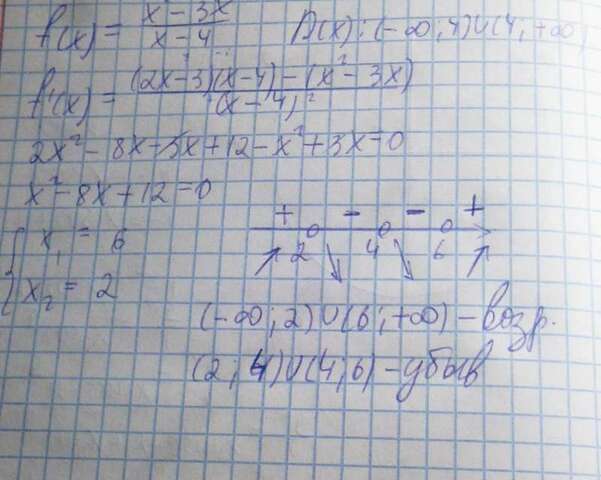 f(x) = (x - 3x)/(x - 4) D(x): (-∞; 4)∪(4; +∞)
f'(x) = ((2x-3)(x-4) - (x² - 3x))/(x - 4)²
2x² - 8x - 3x + 12 - x² + 3x = 0
x² - 8x + 12 = 0
{ x₁ = 6
x₂ = 2
+ - - +
2 4 6
(-∞; 2)∪(6; +∞) - возр.
(2; 4)∪(4; 6) - убыв